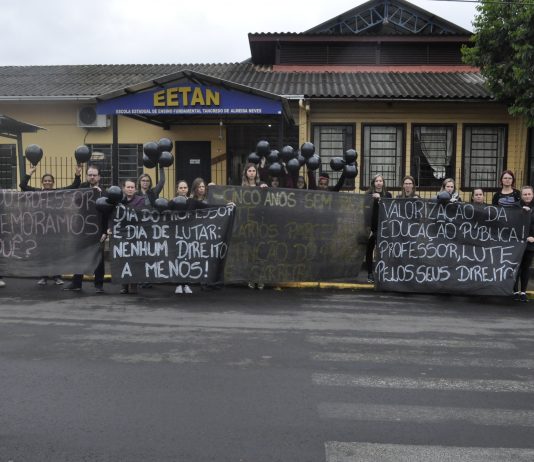 EETAN
ESCOLA ESTADUAL DE ENSINO FUNDAMENTAL TANCREDO DE ALMEIDA NEVES
PROFESSOR
EMORAMOS
QUÊ?
DIA DO PROFESSOR
É DIA DE LUTAR:
NENHUM DIREITO
A MENOS!
CINCO ANOS SEM
CARREIRA
VALORIZAÇÃO DA
EDUCAÇÃO PÚBLICA!
PROFESSOR, LUTE
PELOS SEUS DIREITO